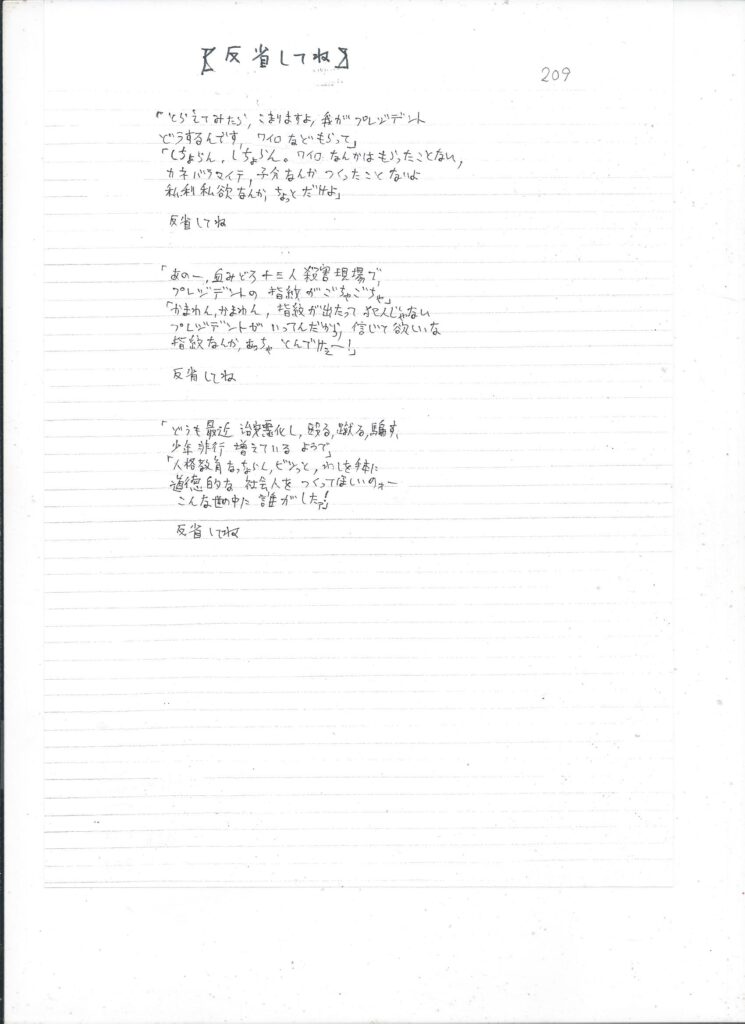 【反省してね】
209
「とらえてみたら、こまりますよ、我がプレジデント
どうするんです、ワイロなどもらって」
「しちょらん、しちょらん。ワイロなんかはもらったことない、
カネバラマイテ、子分なんかつくったことないよ
私利私欲なんか、ちょっとだけよ」
反省してね
「あのー、血みどろ十三人殺害現場で、
プレジデントの指紋がごちゃごちゃ」
「かまわん、かまわん、指紋が出たって犯人じゃない
プレジデントがいってんだから、信じて欲しいな
指紋なんか、あっちゃとんでけェ〜!」
反省してね
「どうも最近治安悪化し、殴る、蹴る、騙す、
少年非行増えているようで」
「人格教育なっちょらん、ビシっと、わしを手本に
道徳的な社会人をつくってほしいのォー
こんな世の中に誰がしたァ!」
反省してね